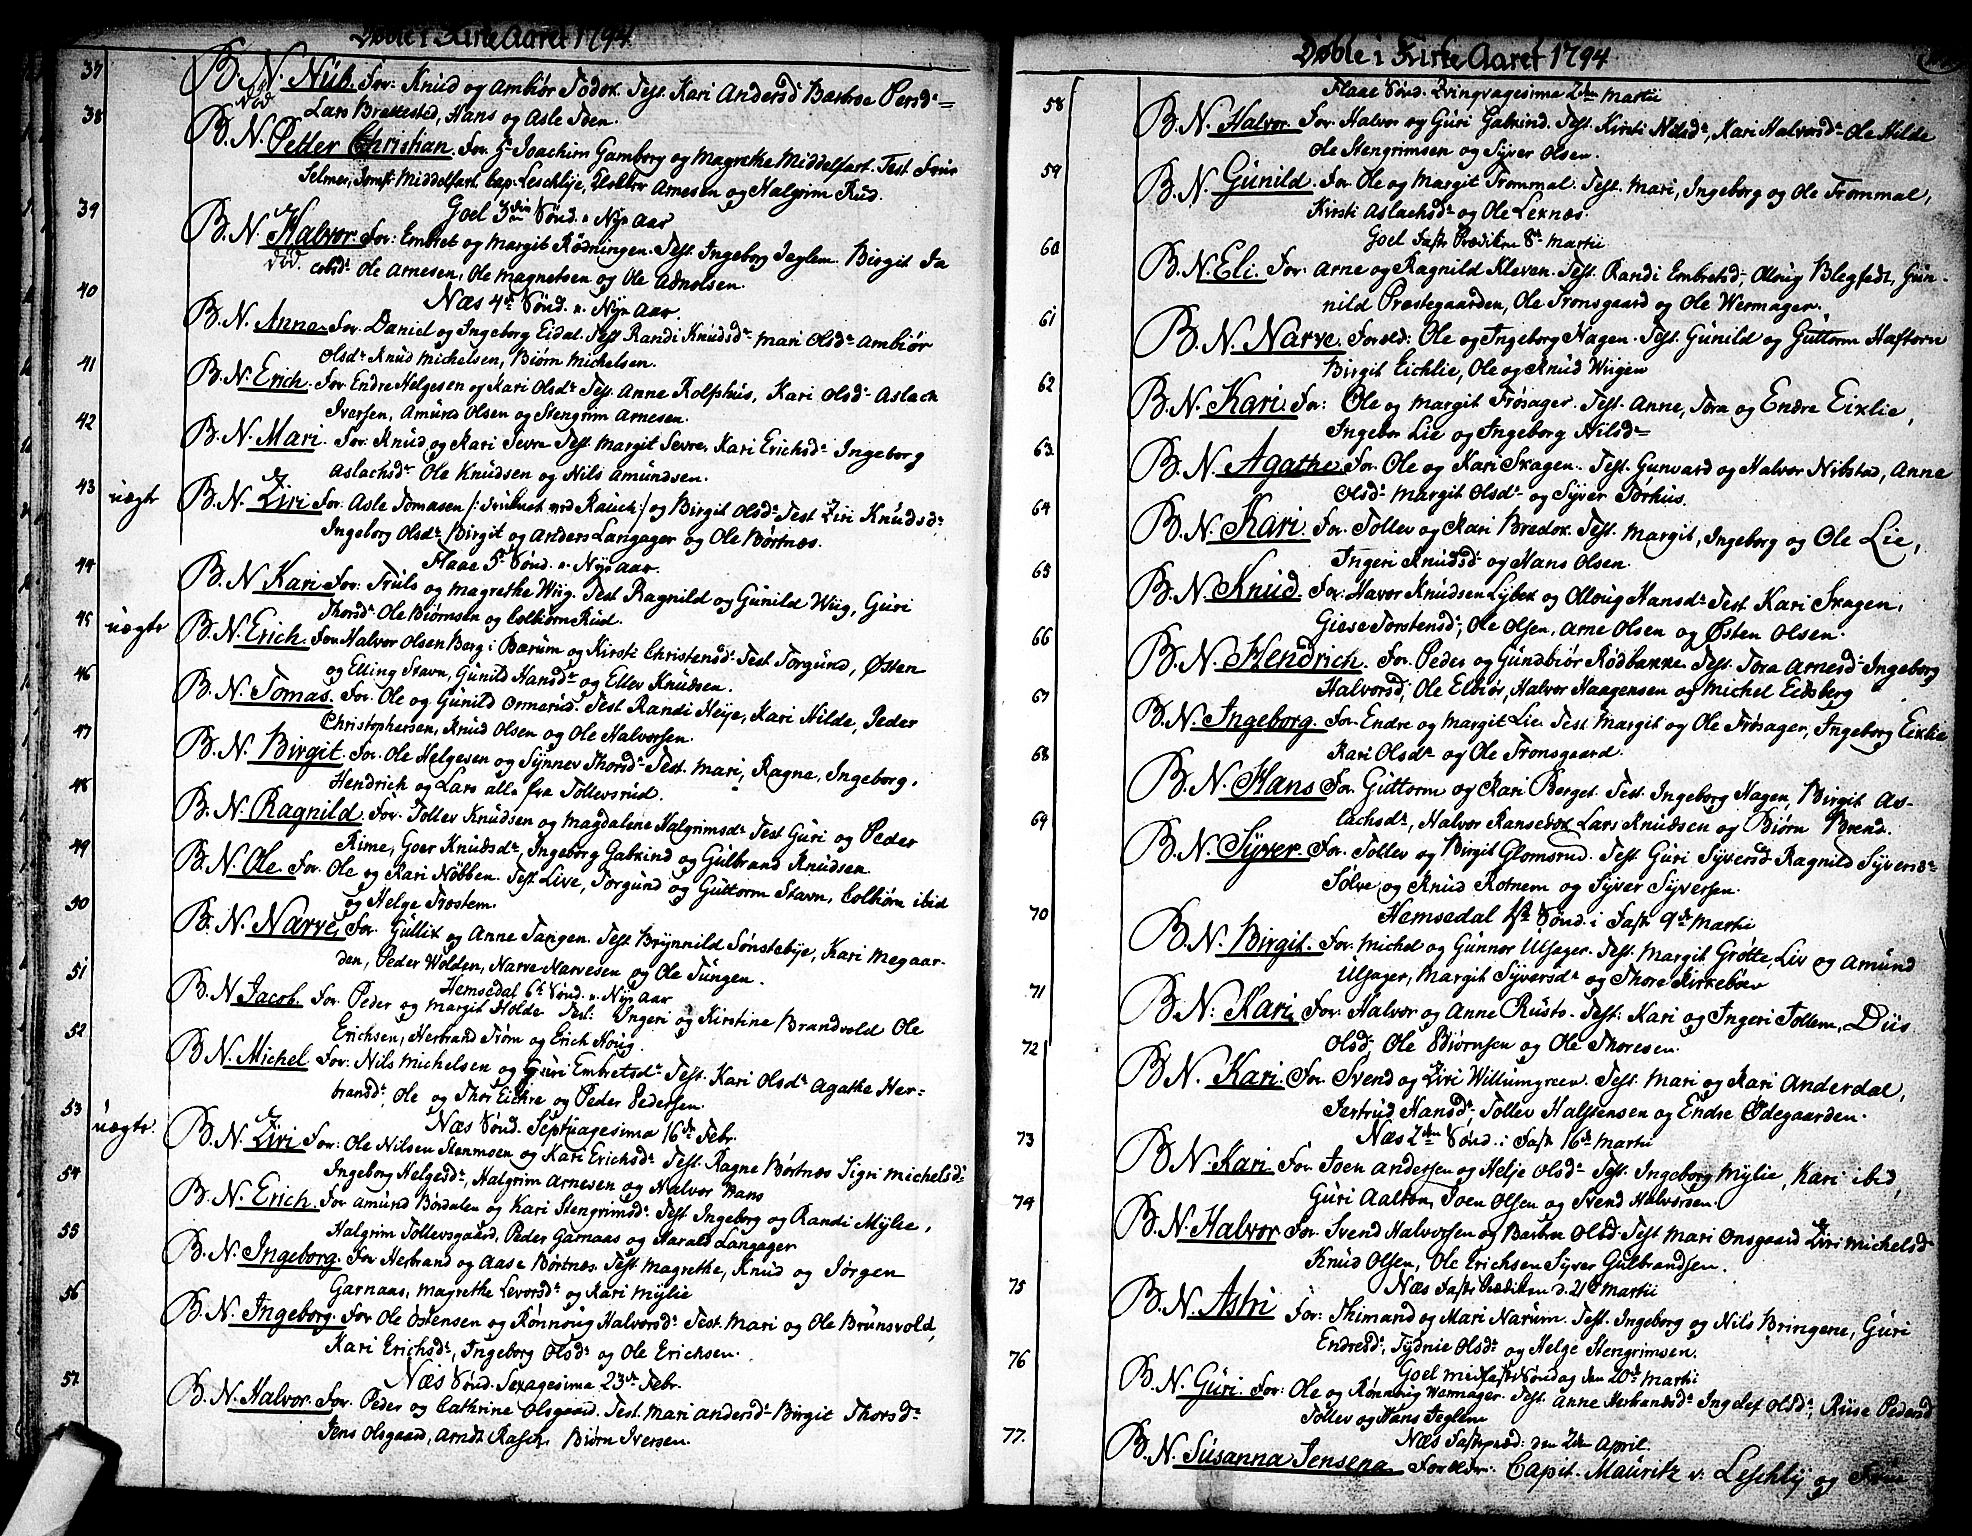 Døbte i Kirke Aaret 1794
37 B. N. Nub. For: Knud og Ambiør Todok. Test. Kari Andersd Barbroe Persdr
død
Lars Brattested, Hans og Asle Iden.
38 B. N. Petter Christian. For. Hr Joachim Gamborg og Magrethe Middelfart. Test Frue
Selmer, Jomfr Middelfart. Cap: Leschlye, Arnesen og Halgrim Rud.
Goel 3die Sønd. e. Nyt aar
39 B. N. Halvor. For: Embret og Margit Rødningen. Test. Ingeborg Jeglem. Birgit Ja
død. cobsdr Ole Arnesen, Ole Magnetsen og Ole
Næs 4de Sønd. e. Nyt aar.
40 B. N. Anne. For. Daniel og Ingeborg Eidal. Test Randi Knudsdr Mari Olsdr Ambiør
Olsdr Knud Michelsen, Biørn Michelsen.
41 B. N. Erich. For. Endre Helgesen og Kari Olsdr Test. Anne Rolfshus, Kari Olsdr Aslach
Iversen, Amund Olsen og Stengrim Arnesen.
42 B. N. Mari. For. Knud og Kari Sevre Test. Margit Sevre, Kari Erichsdr Ingeborg
Aslachsdr Ole Knudsen og Nils Amundsen.
43 uægte B. N. Ziri For. Asle Tomasen og Birgit Olsdr Test Ziri Knudsdr
Ingeborg Olsdr Birgit og Anders Langager og Ole Børtnæs.
Flaae 5te Sønd. e. Nyt aar.
44 B. N. Kari For. Truls og Magrethe Wiig. Test Ragnild og Gunild Wiig, Guri
Thorsdr Ole Biørnsen og Colbiørn Rud.
45 uægte B. N. Erich. For. Halvor Olsen Berg i Bærum og Kirsti Christensdr Test Torgund, Østen
og Elling Stavn, Gunild Hansdr og Ellev Knudsen.
46 B. N. Tomas. For. Ole og Gunild Ormerud. Test Randi Heye, Kari Hilde, Peder
Christophersen, Knud Olsen og Ole Halvorsen.
47 B. N. Birgit. For. Ole Helgesen og Synnev Thorsdr Test. Mari, Ragne, Ingeborg,
Hendrich og Lars alle fra Tollevsrud.
48 B. N. Ragnild. For. Tollev Knudsen og Magdaline Halgrimsdr Test Guri og Peder
Rime, Goer Knudsdr, Ingeborg Gabrind og Gulbrand Knudsen.
49 B. N. Ole. For. Ole og Kari Nubben. Test Live, Torgund og Guttorm Stavn, Colbiørn ibid
og Helge Trostem.
50 B. N. Narve, For. Gullik og Anne Tangen. Test Brynnild Sønstebye, Kari Megaar-
den, Peder Wolden, Narve Narvesen og Ole Tungen.
Hemsedal 6te Sønd. e. Nyt aar
51 B. N. Jacob. For. Peder og Margit Holde Test: Ingeri og Kirstine Brandvold Ole
Erichsen, Herbrand Trøm og Erich Houg.
52 B. N. Michel For. Nils Michelsen og Guri Embretsdr Test. Kari Olsdr Agathe Her-
bransdr, Ole og Thor Eickre og Peder Pedersen.
Næs Sønd. Septuagesima 16de Febr.
53 uægte. B. N. Ziri For. Ole Nilsen Stenmsen og Kari Erichsdr Test. Ragne Børtnæs Sigri Michelsdr
Ingeborg Helgesdr, Halgrim Arnesen og Halvor Hans
54 B. N. Erich. For Amund Bøsdalen og Kari Stengrimsdr Test Ingeborg og Randi Mylie,
Halgrim Tollevsgaard, Peder Garnaas og Harald Langager
55 B. N. Ingeborg. For Herbrand og Aase Børtnæs. Test. Magrethe, Knud og Jørgen
Garnaas, Magrethe Levorsdr og Kari Mylie
56 B. N. Ingeborg. For Ole Ostensen og Rønnoug Halvorsdr Test. Mari og Ole Brunsvold,
Kari Erichsdr, Ingeborg Olsdr og Ole Erichsen.
Næs Sønd. Sexagesima 23de Febr.
57 B. N. Halvor. For. Peder og Cathrine Olsgaard. Test. Mari Andersdr Birgit Thorsdr
Jens Olsgaard, Arndt Rasch, Biørn Iversen.
Døbte i Kirke Aaret 1794
Flaae Sønd. Qvinqvagesima 2den Martii
58 B. N. Halvor. For. Halvor og Guri Gabrind. Test. Kirsti Nilsdr, Kari Halvorsdr Ole Hilde
Ole Stengrimsen og Syver Olsen.
59 B. N. Gunild. For. Ole og Margit Trommal. Test. Mari, Ingeborg og Ole Trommal,
Kirsti Aslachsdr og Ole Leknæs.
Goel Faste Prædiken 8de Martii
60 B. N. Eli. For. Arne og Ragnild Kleven. Test. Randi Embretsdr, Olloug Blegfedt, Gun-
nild Præstegaarden, Ole Tronsgaard og Ole Wermager.
61 B. N. Narve. Foreld: Ole og Ingeborg Hagen. Test. Gunild og Guttorm Haftorn
Birgit Eichlie, Ole og Knud Wiigen
62 B. N. Kari. For: Ole og Margit Trøsager. Test. Anne, Tora og Endre Eiklie,
Ingebor Lie og Ingeborg Nilsdr
63 B. N. Agathe For. Ole og Kari Skagen. Test. Gunvard og Halvor Nibstad, Anne
Olsdr Margit Olsdr og Syver Torhus.
64 B. N. Kari For. Tollev og Kari Bredok. Test. Margit, Ingeborg og Ole Lie,
Ingeri Knudsdr og Hans Olsen.
65 B. N. Knud. For. Havor Knudsen Lybek og Olloug Hansdr Test. Kari Skagen,
Giese Torstensdr, Ole Olsen, Arne Olsen og Østen Olsen.
66 B. N. Hendrich. For. Peder og Gundbiør Rødbakke Test. Tora Arnesdr Ingeborg
Halvorsdr, Ole Elbiør, Halvor Haagensen og Michel Eidsberg
67 B. N. Ingeborg. For Endre og Margit Lie Test Margit og Ole Trøsager, Ingeborg Eiklie
Kari Olsdr og Ole Tronsgaard.
68 B. N. Hans For. Guttorm og Kari Berget. Test. Ingeborg Hagen, Birgit As-
lachsdr, Halvor Ransedok Lars Knudsen og Biørn Brend.
69 B. N. Syver. For. Tollev og Birgit Glomsrud. Test. Guri Syversdr Ragnild Syversdr
Sølve og Knud Rotnem og Syver Syversen.
Hemsedal 1ste Sønd. i Faste 9de Martii
70 B. N. Birgit. For. Michel og Gunnor Ulsager. Test. Margit Grøtte, Liv og Amund
Ulsager, Margit Syversdr og Thore Kirkebøen
71 B. N. Kari, For. Halvor og Anne Rusto. Test. Kari og Ingeri Tollem, Diis
Olsdr, Ole Biørnsen og Ole Thoresen.
72 B. N. Kari. For. Svend og Ziri Willumgreen. Test. Mari og Kari Anderdal,
Jertrud Hansdr Tollev Halstensen og Endre Ødegaarden.
Næs 2den Sønd. i Faste 16de Martii
73 B. N. Kari For. Joen Andersen og Helje Olsdr Test. Ingeborg Mylie, Kari ibid,
Guri Aalton, Joen Olsen og Svend Halvorsen.
74 B. N. Halvor For. Svend Halvorsen og Barbra Olsdr Test Mari Onsgaard Ziri Michelsdr
Knud Olsen, Ole Erichsen Syver Gulbrandsen.
Næs Faste Prædiken d. 21de Martii
75 B. N. Astri For: Thimand og Mari Narum. Test. Ingeborg og Nils Bringene, Guri
Endresdr, Sydnie Olsdr og Helge Stengrimsen.
Goel Midfaste Søndag den 20de Martii
76 B. N. Guri. For: Ole og Rønnoug Wermager. Test. Anne Herbrandsdr Ingelef Olsdr, Riise Pedersd
Tollev og Hans Jeglem
Næs Fastepræd: den 2den April.
77. B. N. Susanna Jensena Foreldr: Capit. Mauritz v. Leschly og Frue